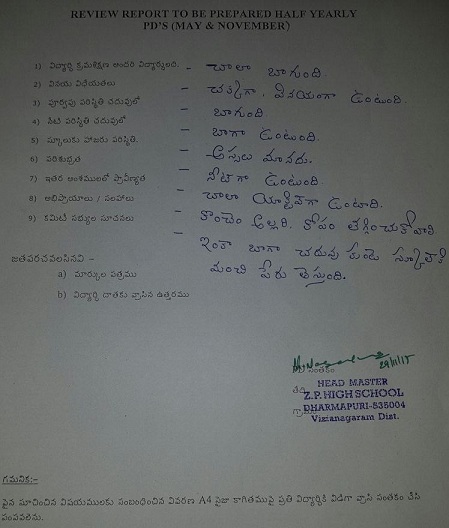 REVIEW REPORT TO BE PREPARED HALF YEARLY
PD'S (MAY & NOVEMBER)
1) విద్యార్థి క్రమశిక్షణ అందరి విద్యార్థులది. - చాలా బాగుంది.
2) వినయ విధేయతలు - చక్కగా, వినయంగా ఉంటుంది.
3) పూర్వపు పరిస్థితి చదువులో - బాగుంది
4) నేటి పరిస్థితి చదువులో - బాగా ఉంటుంది.
5) స్కూలుకు హాజరు పరిస్థితి. - అస్సలు మానదు.
6) పరిశుభ్రత - నీట్‌గా ఉంటుంది.
7) ఇతర అంశములలో ప్రావీణ్యత - చాలా యాక్టివ్‌గా ఉంటాది.
8) అభిప్రాయాలు / సలహాలు - కొంచెం అల్లరి. కోపం తగ్గించుకోవాలి
9) కమిటీ సభ్యుల సూచనలు - ఇంకా బాగా చదువు
మంచి పేరు తెస్తుంది.
జతపరచవలసినవి :-
a) మార్కుల పత్రము
b) విద్యార్థి దాతకు వ్రాసిన ఉత్తరము
సంతకం
HEAD MASTER
Z.P. HIGH SCHOOL
DHARMAPURI-535004
Vizianagaram Dist.
గమనిక:-
పైన సూచించిన విషయములకు సంబంధించిన వివరణ A4 సైజు కాగితముపై ప్రతి విద్యార్థికి విడిగా వ్రాసి సంతకం చేసి
పంపవలెను.